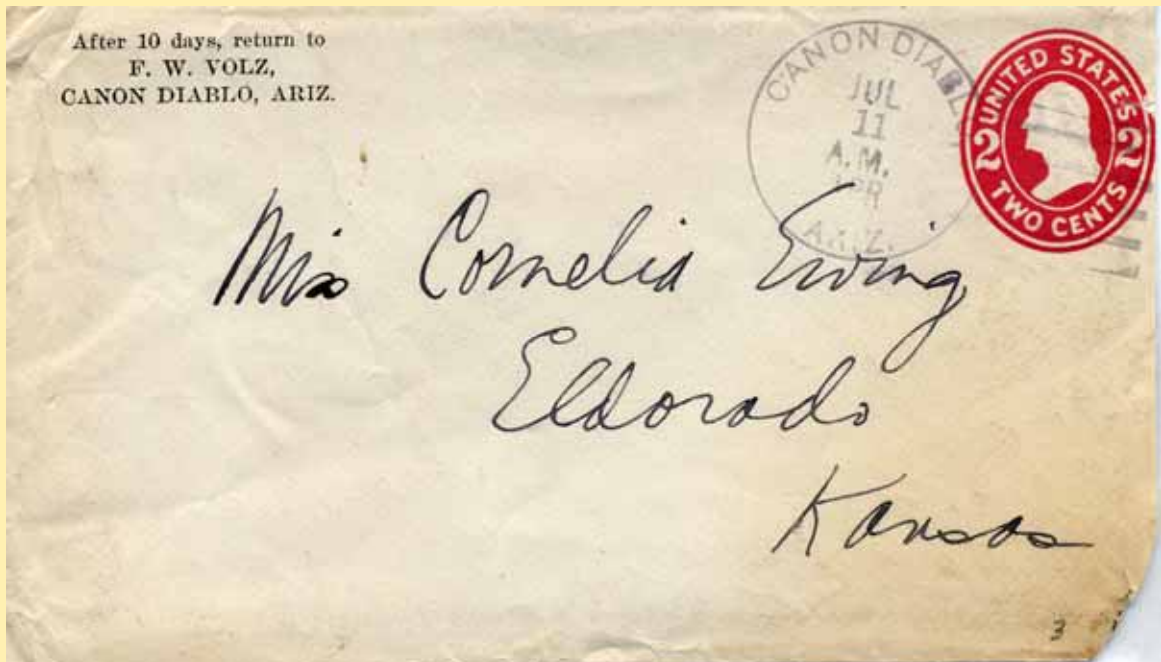 After 10 days, return to
F. W. VOLZ,
CANON DIABLO, ARIZ.
CANON DIABL
JUL
11
A.M.
ARIZ.
UNITED STATES
2 2
TWO CENTS
Miss Cornelia Ewing
Eldorado
Kansas